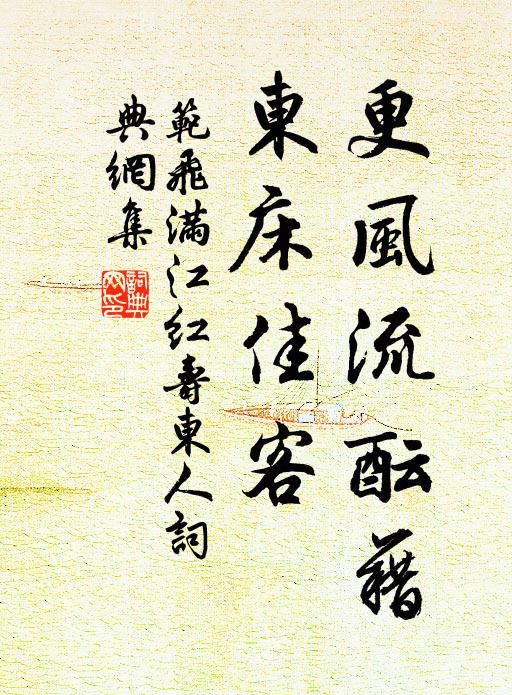 更風流酝藉
東床佳客
範飛滿江紅壽東人詞
典網集
詞典
网印